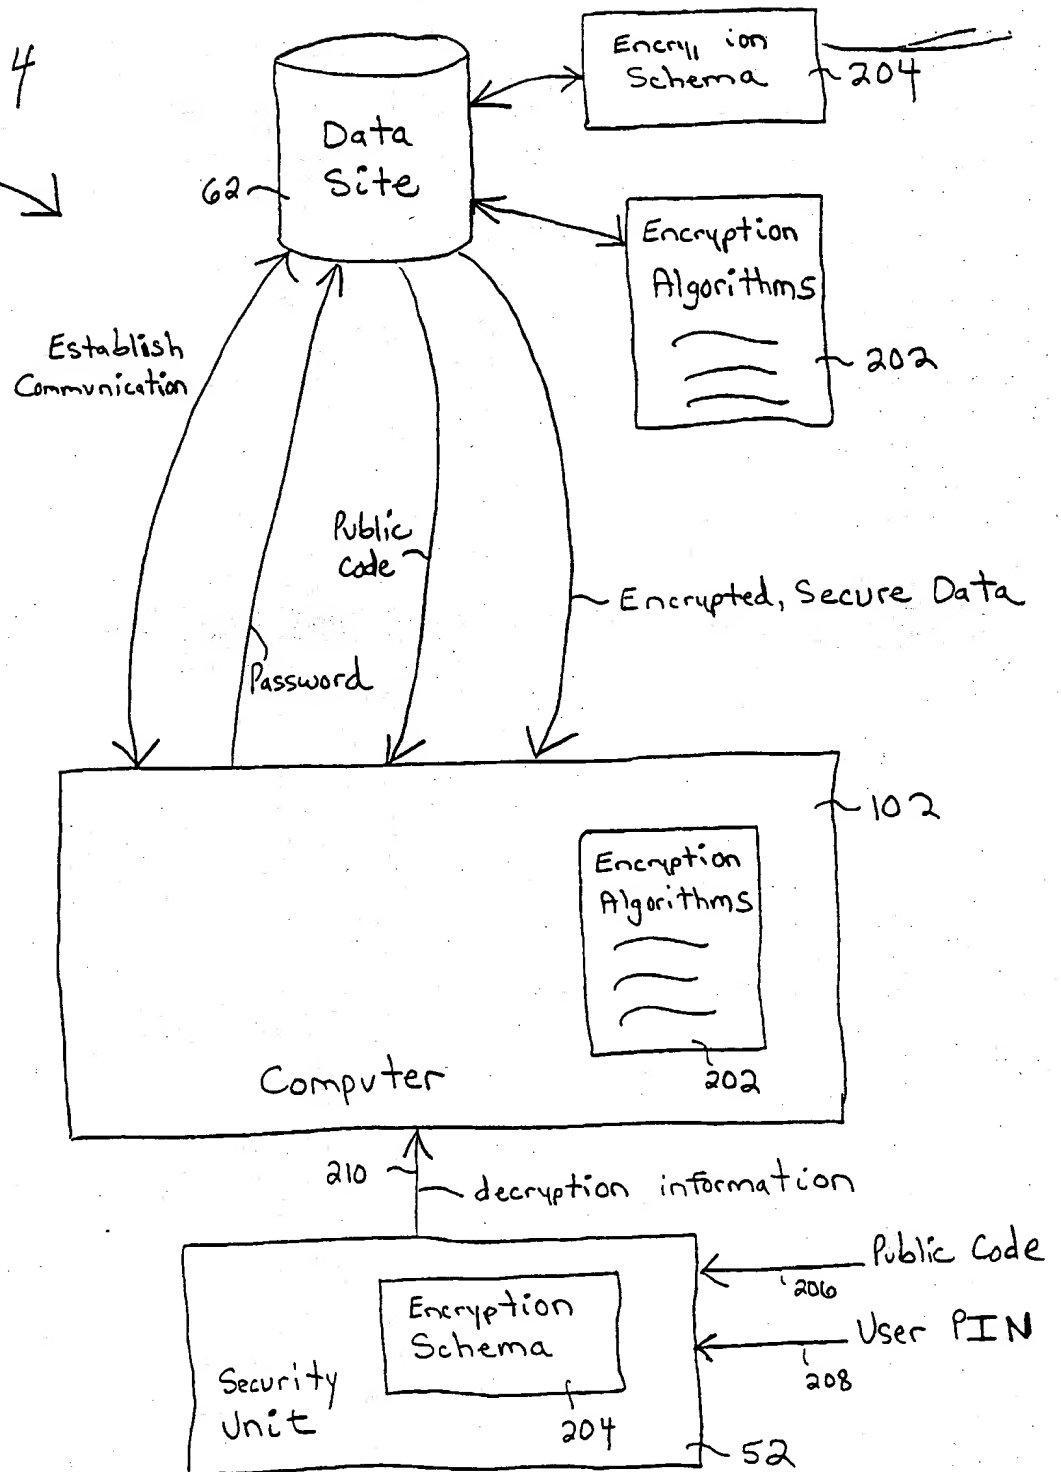 4
Encryp ion
Schema
204
Data
Site
62
Encryption
Algorithms
202
Establish
Communication
Public
Code
Encrypted, Secure Data
Password
102
Encryption
Algorithms
202
Computer
210
decryption information
Public Code
206
Encryption
Schema
User PIN
208
Security
Unit
204
52